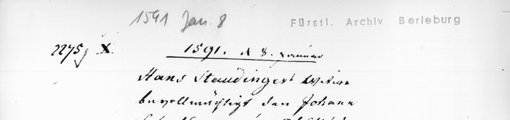 1591 Jan. 8
Fürstl. Archiv Berleburg
2275j X. 1591. d 8. Januar
Hans Staudingers Witwe
bevollmächtigt den Johann